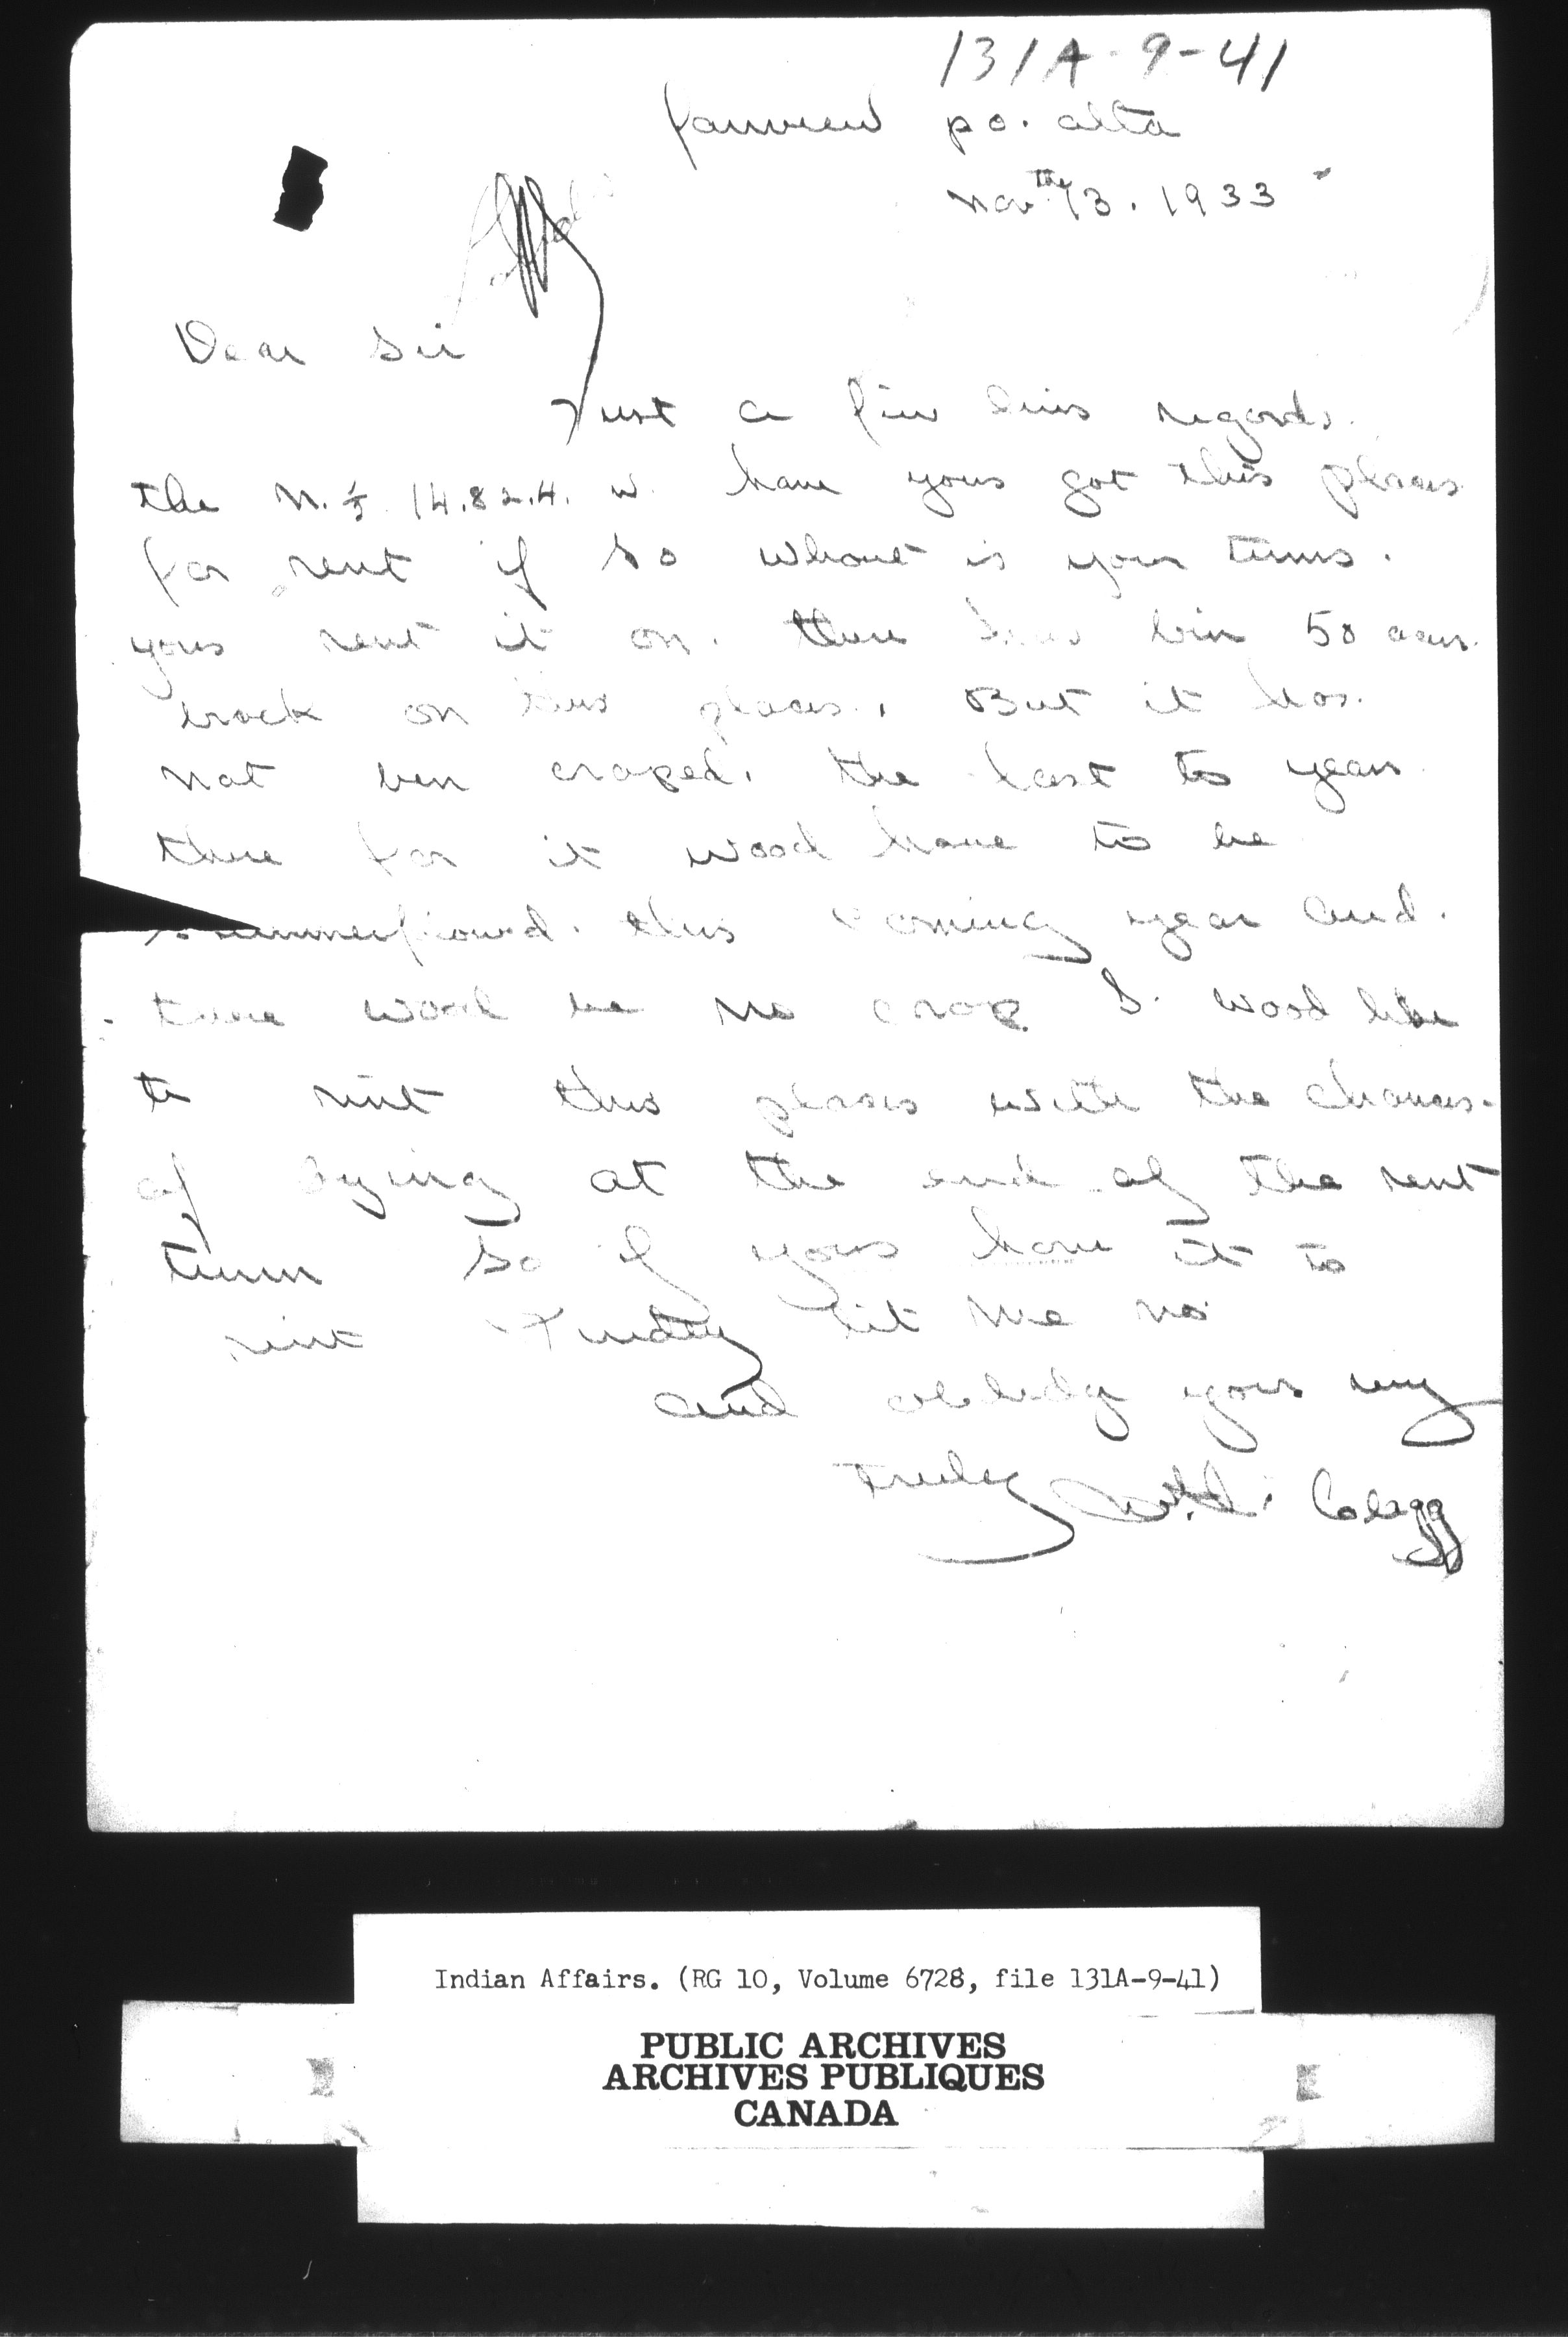 131A-9-41
fairview po. alta
Nov the 13. 1933
Dear Sir
Just a fiw lins regards.
the N. ½ 14.82.4. W. have yous got this places
for rent if so whout is your tirms.
yous rent it on. there has bin 50 acurs.
brock on this places. But it has.
not ben croped. the last to years
there for it wood have to be
summerfloued. this coming year and.
there wood be no crop I. wood like
to rint this places with the chances.
of bying at the end of the rent
turm So if yous have it to
rint kindley lit me no
and obbledg yours very
truley
Indian Affairs. (RG 10, Volume 6728, file 131A-9-41)
PUBLIC ARCHIVES
ARCHIVES PUBLIQUES
CANADA